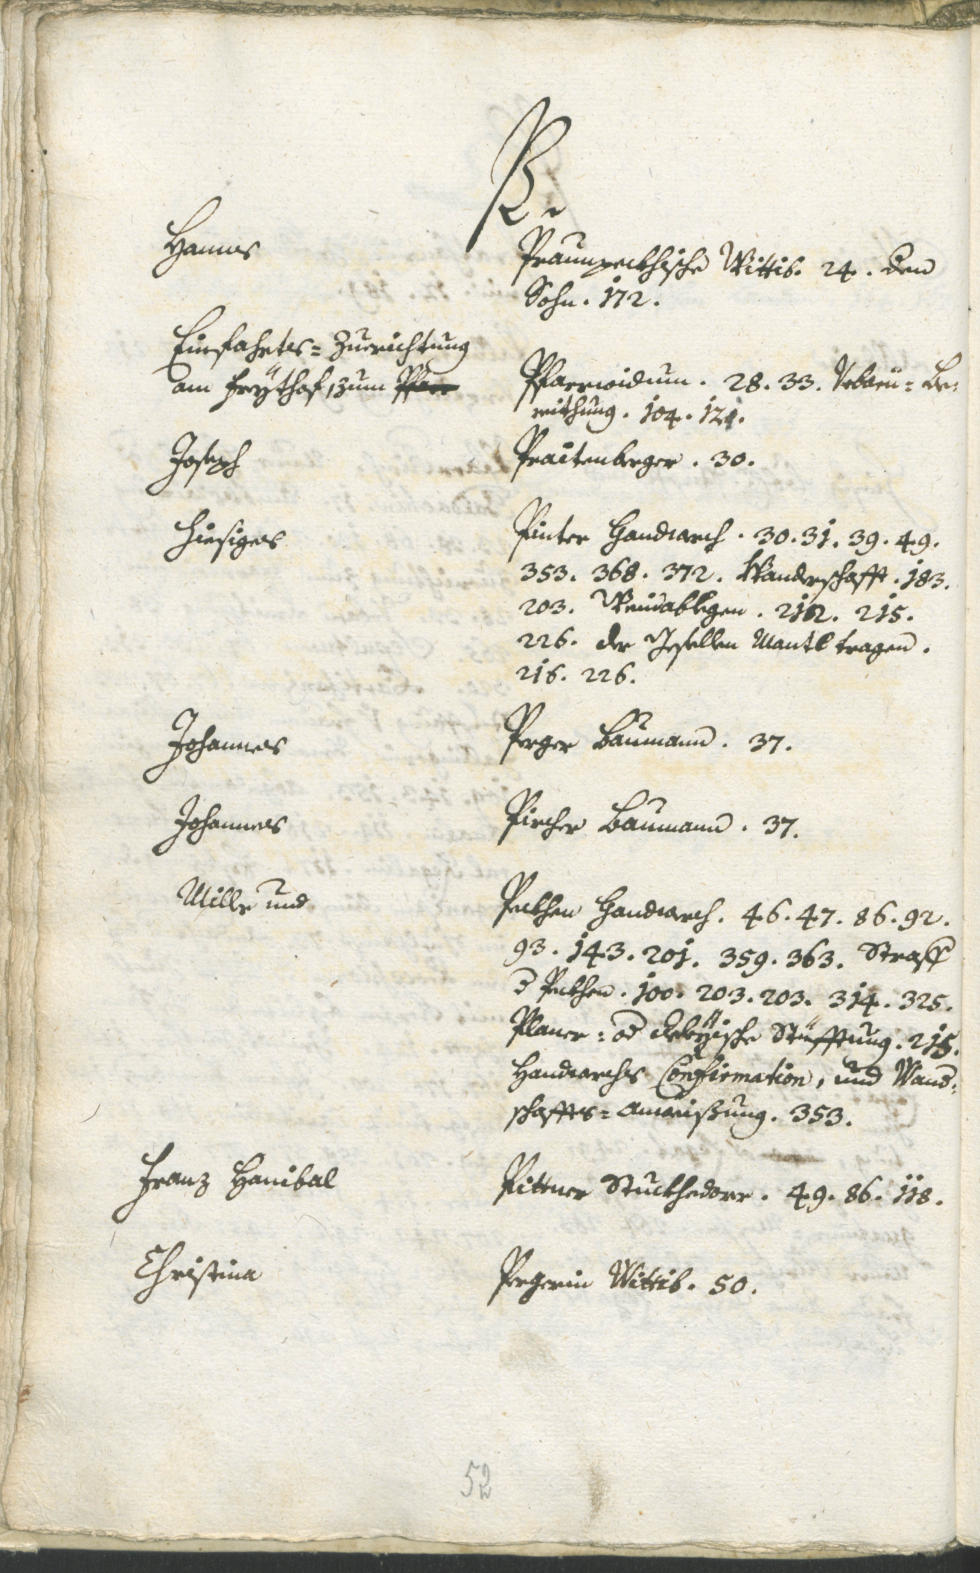 P.
Hannes
Praunpeckhische Wittib. 24. dem
Sohn. 172.
Einfahrts= Zuerichtung
am Freythof, zum Pfarr
Pfarrwidum. 28. 33. Be=
withung. 104. 121.
Joseph
Praitenberger. 30.
Hiesiges
Pinter Handwerch. 30. 31. 39. 49.
353. 368. 372. Wanderschafft. 183.
203. 212. 215.
226. der Gesellen Mantl tragen.
216. 226.
Johannes
Perger Baumann. 37.
Johannes
Pircher Baumann. 37.
Miller und
Peckhen Handwerch. 46. 47. 86. 92.
93. 143. 201. 359. 363. Straff
d Peckhen. 100. 203. 203. 314. 325.
Stüfftung. 215.
Handwerchs Confirmation, und Wand=
schaffts= anweisung. 353.
Franz Hanibal
Pittner Stuckhedorr. 49. 86. 118.
Christina
Pergerin Wittib. 50.
52